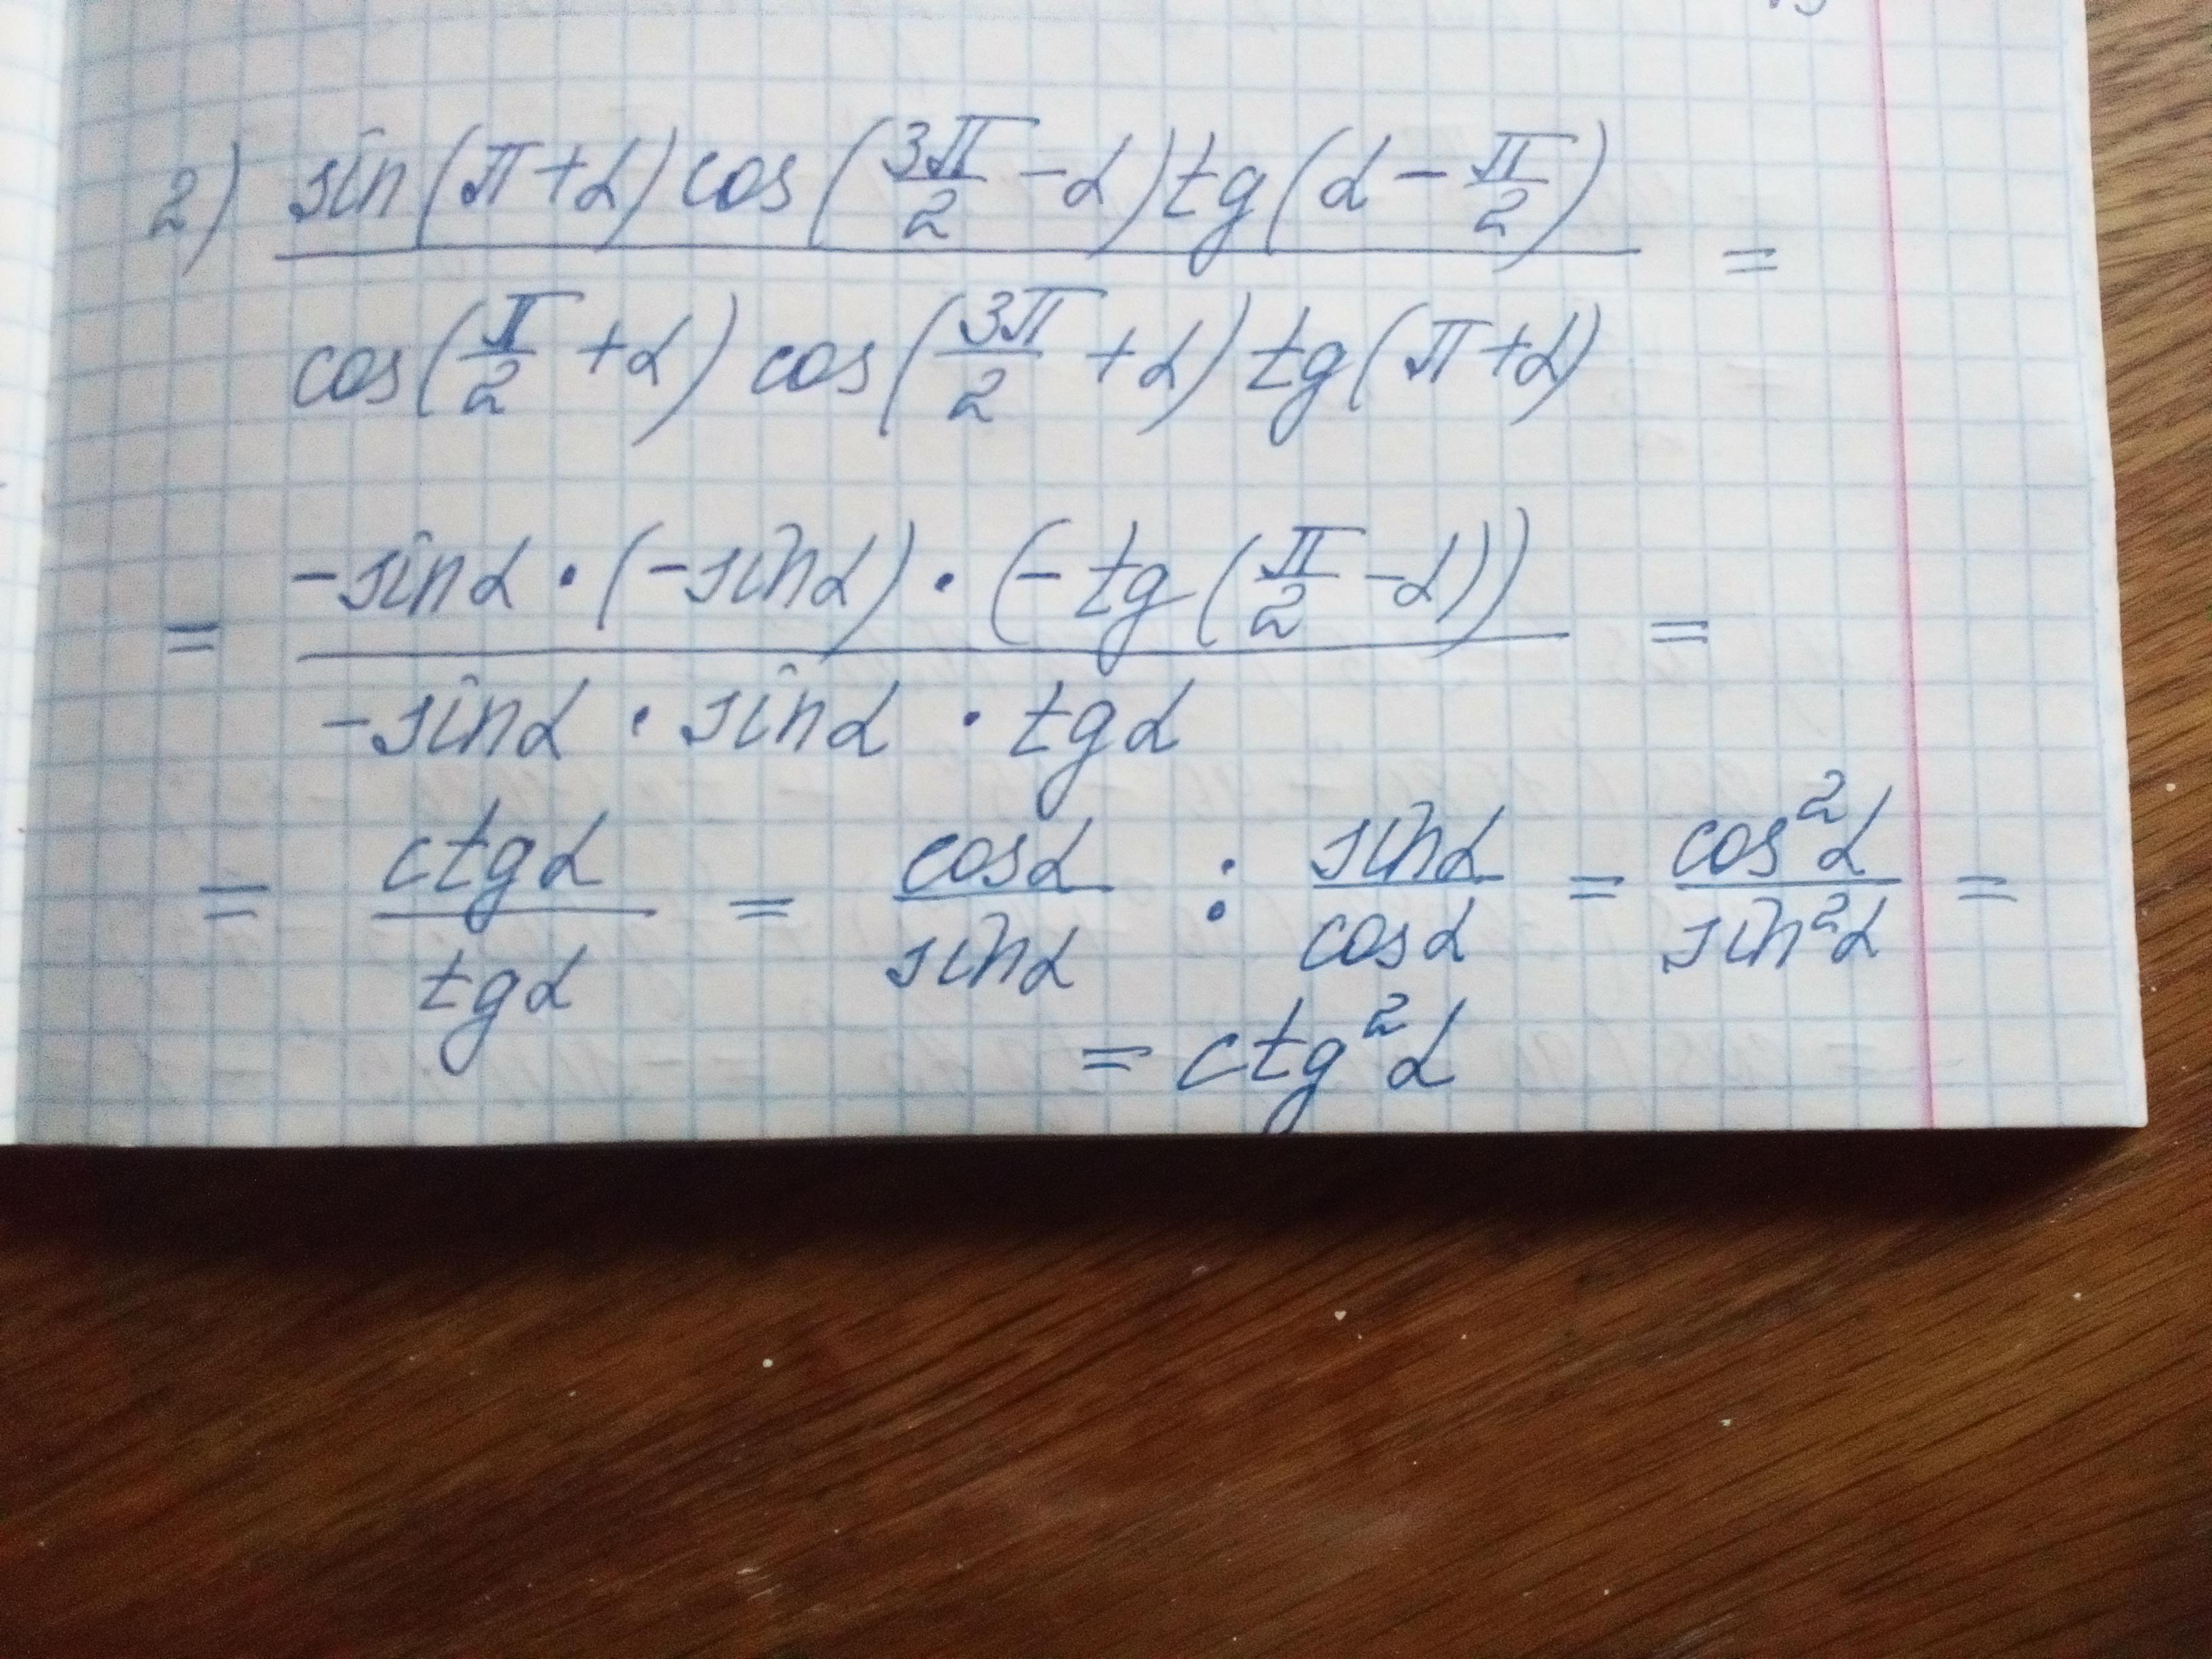 2) sin(π+α)cos(3π/2-α)tg(α-π/2) =
cos(π/2+α) cos(3π/2+α) tg(π+α)
= -sinα·(-sinα)·(-tg(π/2-α)) =
-sinα · sinα · tgα
= ctgα/tgα = cosα/sinα : sinα/cosα = cos²α/sin²α =
= ctg²α